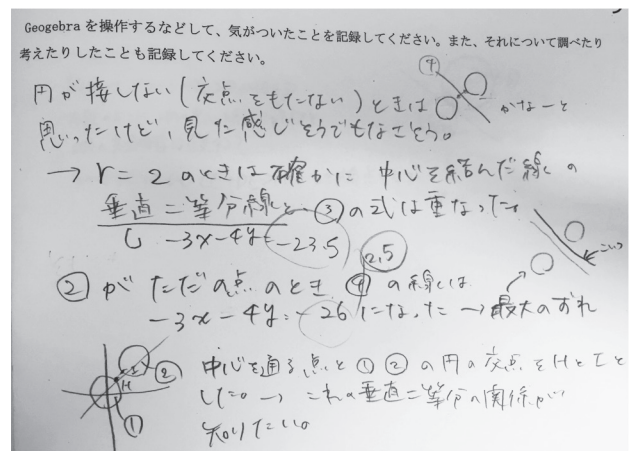 Geogebra を操作するなどして、気がついたことを記録してください。また、それについて調べたり
考えたりしたことも記録してください。
円が接しない(交点をもたない)ときは ④ かなーと
思ったけど、見た感じそうでもなさそう。
→ r=2 のときは確かに 中心を結んだ線の
垂直二等分線と ③ の式は重なった。
↳ -3x-4y=-23.5
② がただの点のとき ④ の線は 2.5
-3x-4y=-26 になった → 最大のずれ
こいつ
中心を通る点と ① ② の円の交点を H と I と
した。→ これの垂直二等分の関係が
知りたい。
② I H ①